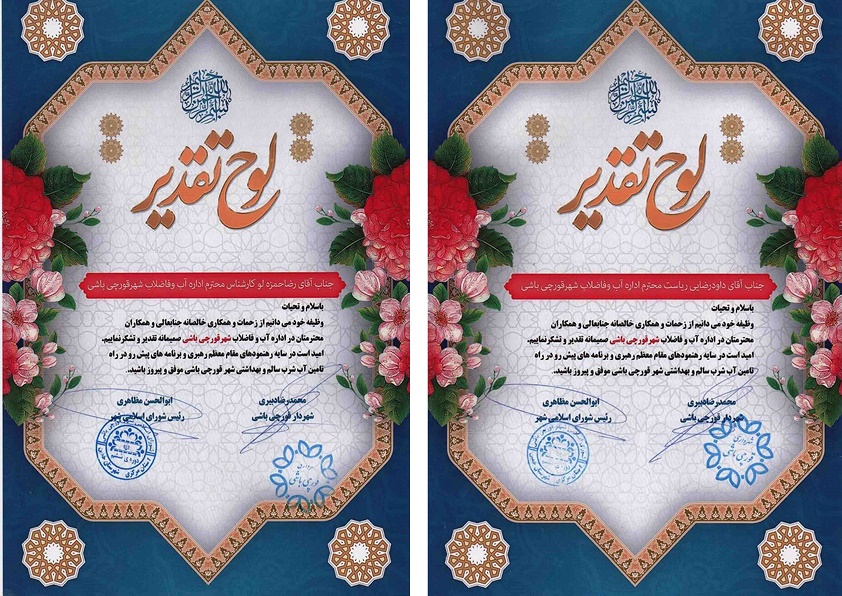 لوح تقدیر
جناب آقای رضاحمزه لو کارشناس محترم اداره آب وفاضلاب شهرقورچی باشی
باسلام و تحیات
وظیفه خود می دانیم از زحمات و همکاری خالصانه جنابعالی و همکاران
محترمتان در اداره آب و فاضلاب شهرقورچی باشی صمیمانه تقدیر و تشکرنماییم.
امید است در سایه رهنمودهای مقام معظم رهبری و برنامه های پیش رو در راه
تامین آب شرب سالم و بهداشتی شهر قورچی باشی موفق و پیروز باشید.
محمدرضادبیری
شهردار قورچی باشی
ابوالحسن مظاهری
رئیس شورای اسلامی شهر
قورچی باشی
لوح تقدیر
جناب آقای داودرضایی ریاست محترم اداره آب وفاضلاب شهرقورچی باشی
باسلام و تحیات
وظیفه خود می دانیم از زحمات و همکاری خالصانه جنابعالی و همکاران
محترمتان در اداره آب و فاضلاب شهرقورچی باشی صمیمانه تقدیر و تشکرنماییم.
امید است در سایه رهنمودهای مقام معظم رهبری و برنامه های پیش رو در راه
تامین آب شرب سالم و بهداشتی شهر قورچی باشی موفق و پیروز باشید.
محمدرضادبیری
شهردار قورچی باشی
ابوالحسن مظاهری
رئیس شورای اسلامی شهر
شهرداری
قورچی باشی